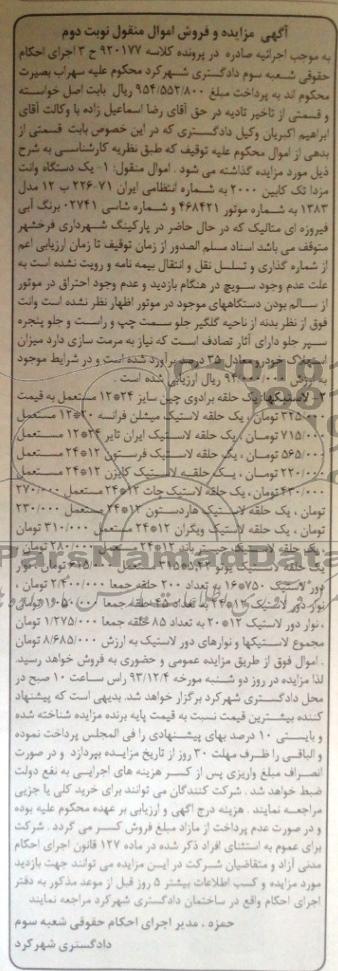 آگهی مزایده و فروش اموال منقول نوبت دوم
به موجب اجرائیه صادره در پرونده کلاسه ۹۲۰۱۷۷ ح ۳ اجرای احکام
حقوقی شعبه سوم دادگستری شهرکرد محکوم علیه سهراب بصیرت
محکوم اند به پرداخت مبلغ ۹۵۴/۵۵۲/۸۰۰ ریال بابت اصل خواسته
و قسمتی از تاخیر تادیه در حق آقای رضا اسماعیل زاده با وکالت آقای
ابراهیم اکبریان وکیل دادگستری که در این خصوص بابت قسمتی از
بدهی از اموال محکوم علیه توقیف که طبق نظریه کارشناسی به شرح
ذیل مورد مزایده گذاشته می شود . اموال منقول: ۱- یک دستگاه وانت
مزدا تک کابین ۲۰۰۰ به شماره انتظامی ایران ۷۱-۲۲۶ ب ۱۲ مدل
۱۳۸۳ به شماره موتور ۴۶۸۴۲۱ و شماره شاسی ۰۲۷۴۱ برنگ آبی
فیروزه ای متالیک که در حال حاضر در پارکینگ شهرداری فرخشهر
متوقف می باشد اسناد مسلم الصدور از زمان توقیف تا زمان ارزیابی اعم
از شماره گذاری و تسلسل نقل و انتقال بیمه نامه و رویت نشده است به
علت عدم وجود سویچ در هنگام بازدید و عدم وجود احتراق در موتور
از سالم بودن دستگاههای موجود در موتور اظهار نظر نشده است وانت
فوق از نظر بدنه از ناحیه گلگیر جلو سمت چپ و راست و جلو پنجره
سپر جلو دارای آثار تصادف است که نیاز به مرمت سازی دارد میزان
استهلاک خودرو معادل ۳۵ درصد برآورد شده است و در شرایط موجود
به ریال ارزیابی شده است .
لاستیکها: یک حلقه برادوی چین سایز ۲۴*۱۲ مستعمل به قیمت
۳۲۵/۰۰۰ تومان ، یک حلقه لاستیک میشلن فرانسه ۲۰*۱۲ مستعمل
۷۱۵/۰۰۰ تومان ، یک حلقه لاستیک ایران تایر ۲۴*۱۲ مستعمل
۵۶۵/۰۰۰ تومان ، یک حلقه لاستیک فرستون ۱۲*۲۴ مستعمل
۲۲۰/۰۰۰ تومان ، یک حلقه لاستیک کایزن ۱۲*۲۴ مستعمل
۴۳۰/۰۰۰ تومان ، یک حلقه لاستیک جات ۱۲*۲۴ مستعمل ۲۷۰/۰۰۰
تومان ، یک حلقه لاستیک هاردستون ۱۲*۲۴ مستعمل ۲۳۰/۰۰۰
تومان ، یک حلقه لاستیک ویگران ۱۲*۲۴ مستعمل ۳۱۰/۰۰۰ تومان
یک حلقه لاستیک ۲۸۰/۰۰۰ تومان
یک حلقه لاستیک تومان ، نوار
دور لاستیک ۷۵۰*۱۶ به تعداد ۲۰۰ حلقه جمعا ۲/۴۰۰/۰۰۰ تومان ،
نوار دور لاستیک ۱۲*۲۴ به تعداد حلقه جمعا تومان
، نوار دور لاستیک ۱۲*۲۰ به تعداد ۸۵ حلقه جمعا ۱/۲۷۵/۰۰۰ تومان
مجموع لاستیکها و نوارهای دور لاستیک به ارزش ۸/۶۸۵/۰۰۰ تومان
. اموال فوق از طریق مزایده عمومی و حضوری به فروش خواهد رسید.
لذا مزایده در روز دو شنبه مورخه ۹۳/۱۲/۴ راس ساعت ۱۰ صبح در
محل دادگستری شهرکرد برگزار خواهد شد. بدیهی است که پیشنهاد
کننده بیشترین قیمت نسبت به قیمت پایه برنده مزایده شناخته شده
و بایستی ۱۰ درصد بهای پیشنهادی را فی المجلس پرداخت نموده
و الباقی را ظرف مهلت ۳۰ روز از تاریخ مزایده بپردازد و در صورت
انصراف مبلغ واریزی پس از کسر هزینه های اجرایی به نفع دولت
ضبط خواهد شد . شرکت کنندگان می توانند برای خرید کلی یا جزیی
مراجعه نمایند . هزینه درج آگهی و ارزیابی بر عهده محکوم علیه بوده
و در صورت عدم پرداخت از مازاد مبلغ فروش کسر می گردد . شرکت
برای عموم به استثنای افراد ذکر شده در ماده ۱۲۷ قانون اجرای احکام
مدنی آزاد و متقاضیان شرکت در این مزایده می توانند جهت بازدید
مورد مزایده و کسب اطلاعات بیشتر ۵ روز قبل از موعد مذکور به دفتر
اجرای احکام واقع در ساختمان دادگستری شهرکرد مراجعه نمایند
حمزه . مدیر اجرای احکام حقوقی شعبه سوم
دادگستری شهرکرد
ParsNamadData